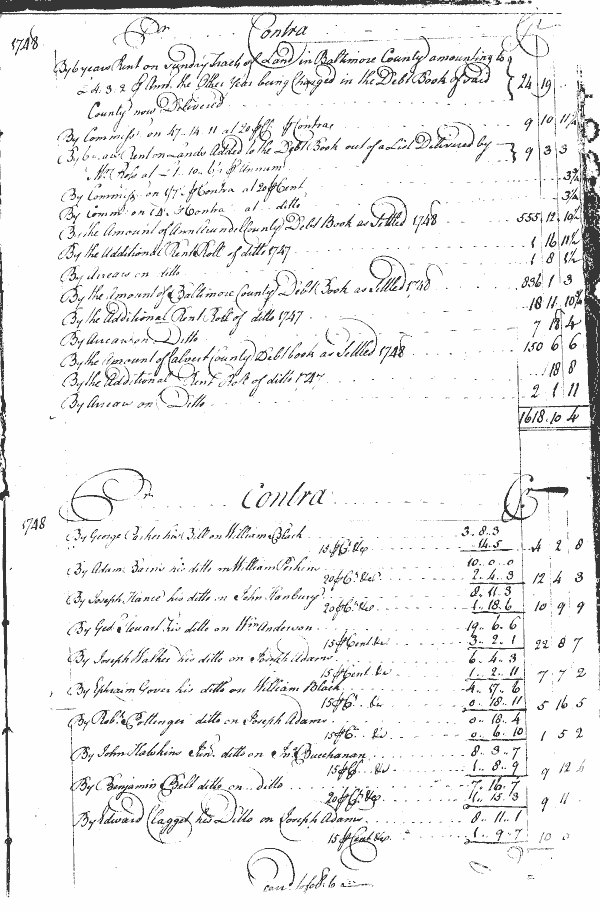 1748
Contra
By 6 years Rent on Sundry Tracts of Land in Baltimore County amounting to
£4. 3. 2 Ann. the Other Year being Charged in the Debt Book of said 24 19
County now Delivered
By Commiss. on 47. 14. 11 at 20 Contra 9 10 11¾
Rent on Lands Added to the Debt Book out of a List Delivered by 9 3 3
Mr. at 1. 10. 6½ Annum
By Commiss. on Contra at 20 Cent 3¾
By Comm. on Contra at ditto 3¾
By the Amount of Ann Arundel County Debt Book as Settled 1748 555 12 10½
By the Additional Rent Roll of ditto 1747 1 16 11½
By Arrears on ditto 1 8 1½
By the Amount of Baltimore County Debt Book as Settled 1748 836 1 3
By the Additional Rent Roll of ditto 1747 18 11 10¾
By Arrears on Ditto 7 18 4
By the Amount of Calvert County Debt book as Settled 1748 150 6 6
By the Additional Rent Roll of ditto 1747 18 8
By Arrears on Ditto 2 1 11
1618. 10 4
1748
Contra
By George Parker his Bill on William Black 3. 8. 3
15 Ct. 14. 5 4 2 8
By Adam Barns his ditto on William Perkins 10. 0. 0
20 Ct. 2. 4. 3 12 4 3
By Joseph Hance his ditto on John Hanbury 8. 11. 3
20 Ct. 1. 18. 6 10 9 9
By Geo. Stewart his ditto on Wm. Anderson 19. 6. 6
15 Cent 3. 2. 1 22 8 7
By Joseph Walker his ditto on Joseph Adams 6. 4. 3
15 Cent 1. 2. 11 7 7 2
By Ephraim Gover his ditto on William Black 4. 17. 6
15 Ct. 0. 18. 11 5 16 5
By Robt. Pottenger ditto on Joseph Adams 0. 18. 4
15 Ct. 0. 6. 10 1 5 2
By John Hutchins Junr. ditto on Jno. Buchanan 8. 3. 7
15 Ct. 1. 8. 9 9 12 4
By Benjamin Belt ditto on ditto 7. 16. 7
20 Ct. 1. 15. 3 9 11
By Edward Clagget his Ditto on Joseph Adams 8. 11. 1
15 Cent 1. 9. 7 10 0